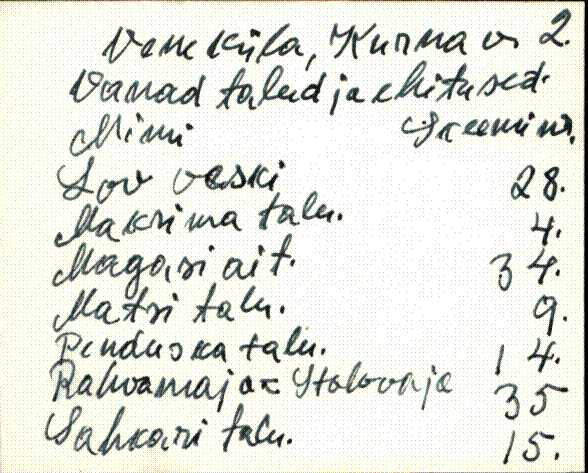 Veneküla, Kurna v. 2.
Vanad talud ja ehitused.
Nimi Skeemi nr.
Lov veski 28.
Maksima talu. 4.
Magasi ait. 34.
Matsi talu. 9.
Penduska talu. 14.
Rahvamaja = Stolovaja 35
Sahkari talu. 15.